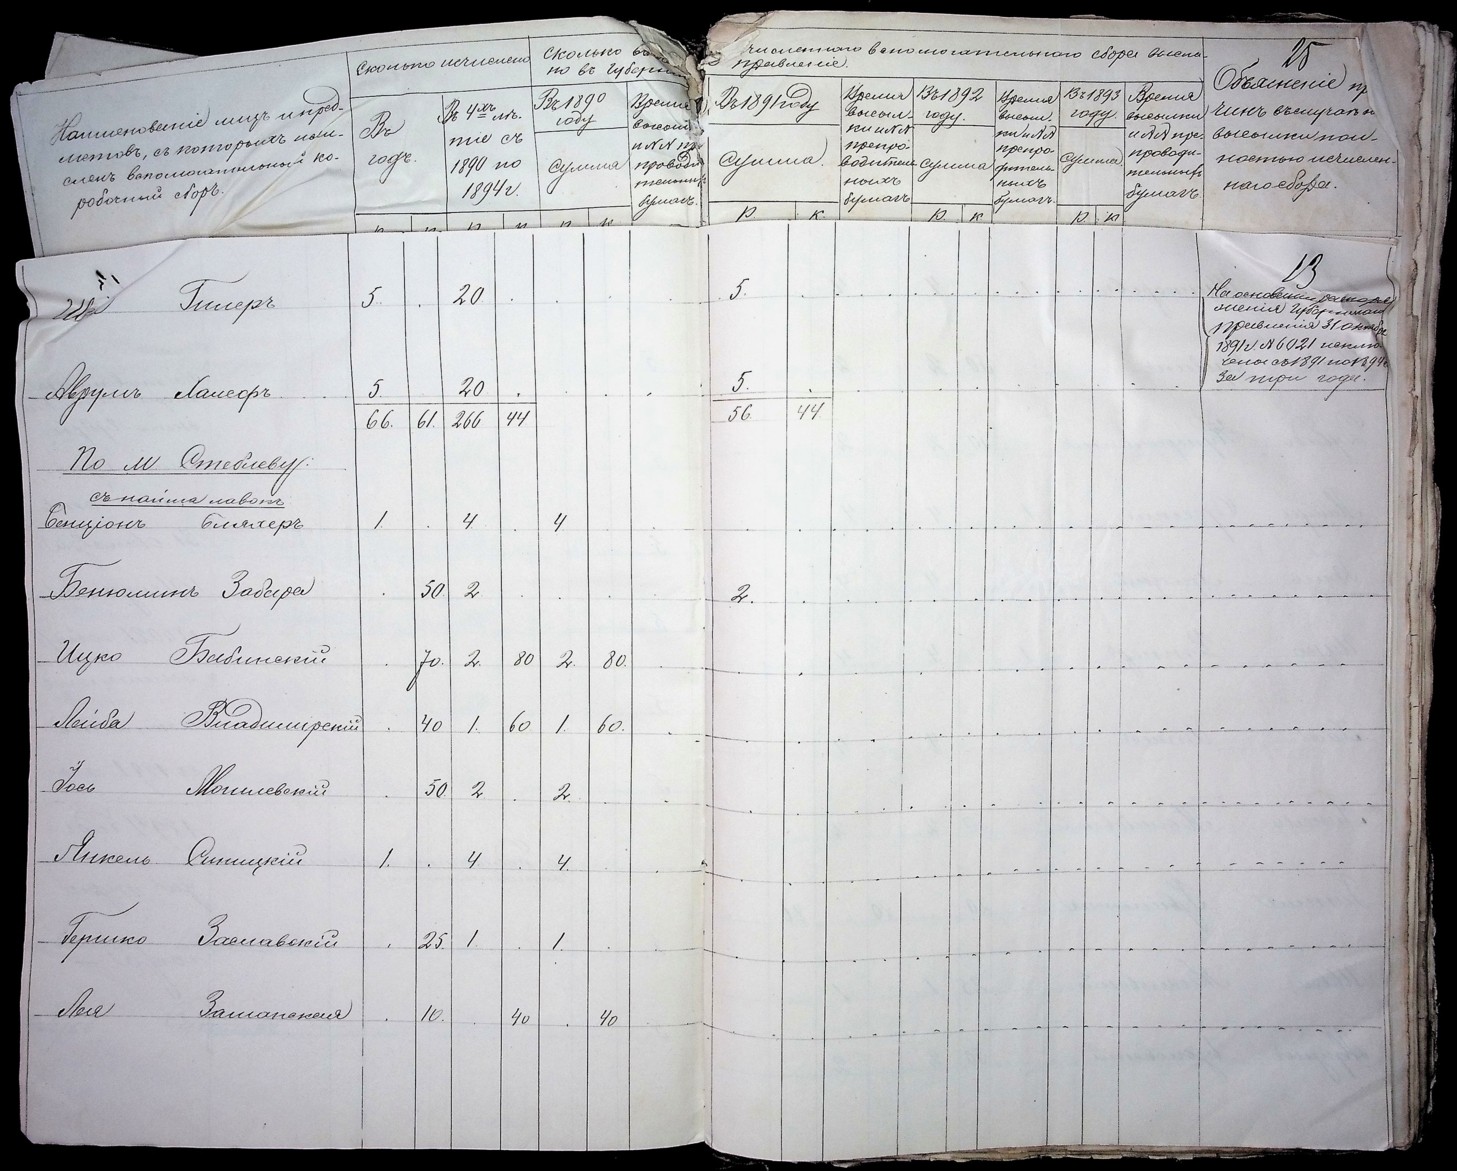 Наименованіе лицъ и пред-
метовъ, съ которыхъ исчи-
сленъ вспомогательный ко-
робочный сборъ.
Сколько исчислено
Въ
годъ.
Въ 4хъ лѣ-
тіе съ
1890 по
1894 г.
Сколько
но въ Губерн
Въ 1890
году
Сумма
Время
высыл
и №№ пре
проводи
тельныхъ
бумагъ.
численного вспомогательнаго сбора
правленіе.
Въ 1891 году
Сумма.
Время
высыл-
ки и №№
препро-
водитель
ныхъ
бумагъ
Въ 1892
году.
Сумма
Время
высыл-
ки и №№
препро-
водитель
ныхъ
бумагъ.
Въ 1893
году.
Сумма
Время
высылки
и №№ пре-
проводи-
тельныхъ
бумагъ.
25
Объясненіе пр
чинъ въ случаѣ не
высылки пол-
ностью исчислен-
наго сбора.
р к р к р к
13
Гилеръ 5. 20 5.
На основаніи распоря
женія Губернскаго
Правленія 31 Октября
1891 г. № 6021 исклю
чено съ 1891 по 1894 г.
За три года.
5. 20 5.
66. 61. 266 44 56. 44
По М Стеблеву:
съ найма лавокъ
Бенціонъ Бляхеръ 1. 4 4
Бенюминъ Забара 50 2 2.
Ицко Бабинскій 70. 2. 80 2. 80.
Лейба Владимирскій 40 1. 60 1. 60.
Іось Могилевскій 50 2 2
Янкель Синицкій 1. 4 4.
Гершко Заславскій 25 1. 1.
Лея 10. 40 40